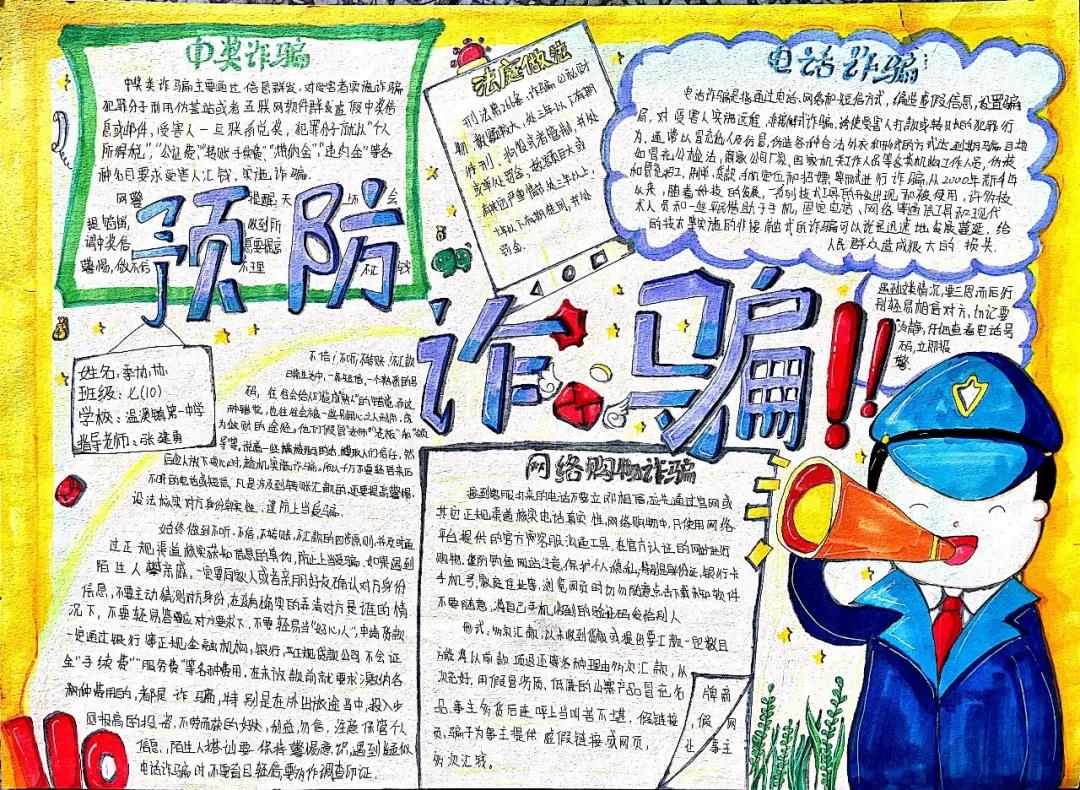 中奖诈骗
中奖类诈骗主要通过信息群发，对受害者实施诈骗
犯罪分子利用伪基站或者互联网软件群发虚假中奖信
息或邮件，受害人一旦联系兑奖，犯罪分子就以"个人
所得税"，"公证费"，"转账手续费"，"滞纳金"，"违约金"等各
种名目要求受害人汇钱，实施诈骗。
网警
提醒，天
会
提
做到所
谓中奖信
警惕，做不信
不理
不汇
钱
法庭做法
刑法第266条：诈骗公私财
物，数额较大，处三年以下有期
徒刑、拘役或者管制，并处
或单处罚金，数额巨大或
有其他严重情节，处三年以上，
十年以下有期徒刑，并处
罚金。
电话诈骗
电话诈骗是指通过电话、网络和短信方式，编造虚假信息，设置骗
局，对受害人实施远程、非接触式诈骗，诱使受害人打款或转账的犯罪行
为，通常以冒充他人及仿冒、伪造各种合法外衣和形式的方式达到期骗目地
如冒充公检法，商家公司厂家，国家机关工作人员等各类机构工作人员，伪技
和冒充招工，刷单，贷款，手机定位和招嫖等形式进行诈骗，从2000年新
以来，随着科技的发展，一系列技术工具的开发出现和被使用，许多技
术人员和一些骗借助于手机，固定电话、网络等通信工具和现代
的技术等实施的非接触式的诈骗可以说是迅速地发展蔓延，给
人民群众造成很大的损失
遇到这类情况，要三思而后行
别轻易相信对方，切记要
冷静，仔细查看电话号
码，立即报
警。
预防
诈骗!!
姓名：季协协
班级：七(10)
学校：温溪镇第一中学
指导老师：张建勇
不信，不听，不转账，不汇款
日常生活中，一条短信，一个熟悉的号
码，
为做财的途径，他们假冒"老师""老板"和"领
导"等，说着一些
后他人放下戒心时，趁机实施诈骗。所以千万不要轻易来历
不明的电话或短信，凡是涉及到转账汇款的，还要提高警惕，
设法核实对方身份真实性，谨防上当受骗。
始终做到不听、不信、不转账、不汇款的四步原则，并及时通
过正规渠道核实获知信息的真伪，防止上当受骗，如果遇到
陌生人攀亲戚，一定要同家人或者亲朋好友确认对方身份
信息，不要主动猜测对方身份，在没有确实的弄清对方是谁的情
况下，不要轻易答应对方要求下，不要轻易当"好心人"，申请贷款
一定通过银行等正规金融机构，银行，正规贷款公司不会证
金"手续费""服务费"等各种费用，在未放款前就要求缴纳各
种费用的，都是诈骗，特别是在外出旅途当中，投入少
回报高的投资，不劳而获的好处，利益，勿信，注意保管个人
信息，陌生人搭讪要保持警惕意识，遇到疑似
电话诈骗时，不要盲目轻信，要多作调查印证。
网络购物诈骗
接到客服打来的电话不要立即相信，应先通过官网或
其它正规渠道核实电话真实性，网络购物中，只使用网络
平台提供的官方客服沟通工具，在官方认证的网站进行
购物，谨防钓鱼网站注意保护个人隐私，特别是身份证，银行卡
手机号，家庭住址等，浏览网页时勿随意点击下载和软件
不要随意，将自己手机收到的验证码发给别人
形式：多次汇款，以未收到货款或提出要汇款一定数目
方能将以前款项退还等各种理由多次汇款，从
次充好，用假冒劣质、低廉的山寨产品冒充名
牌商
品，事主购货后连呼上当叫苦不堪，假链接
，假网
页，骗子为事主提供虚假链接或网页，
址，事主
多次汇钱。
110